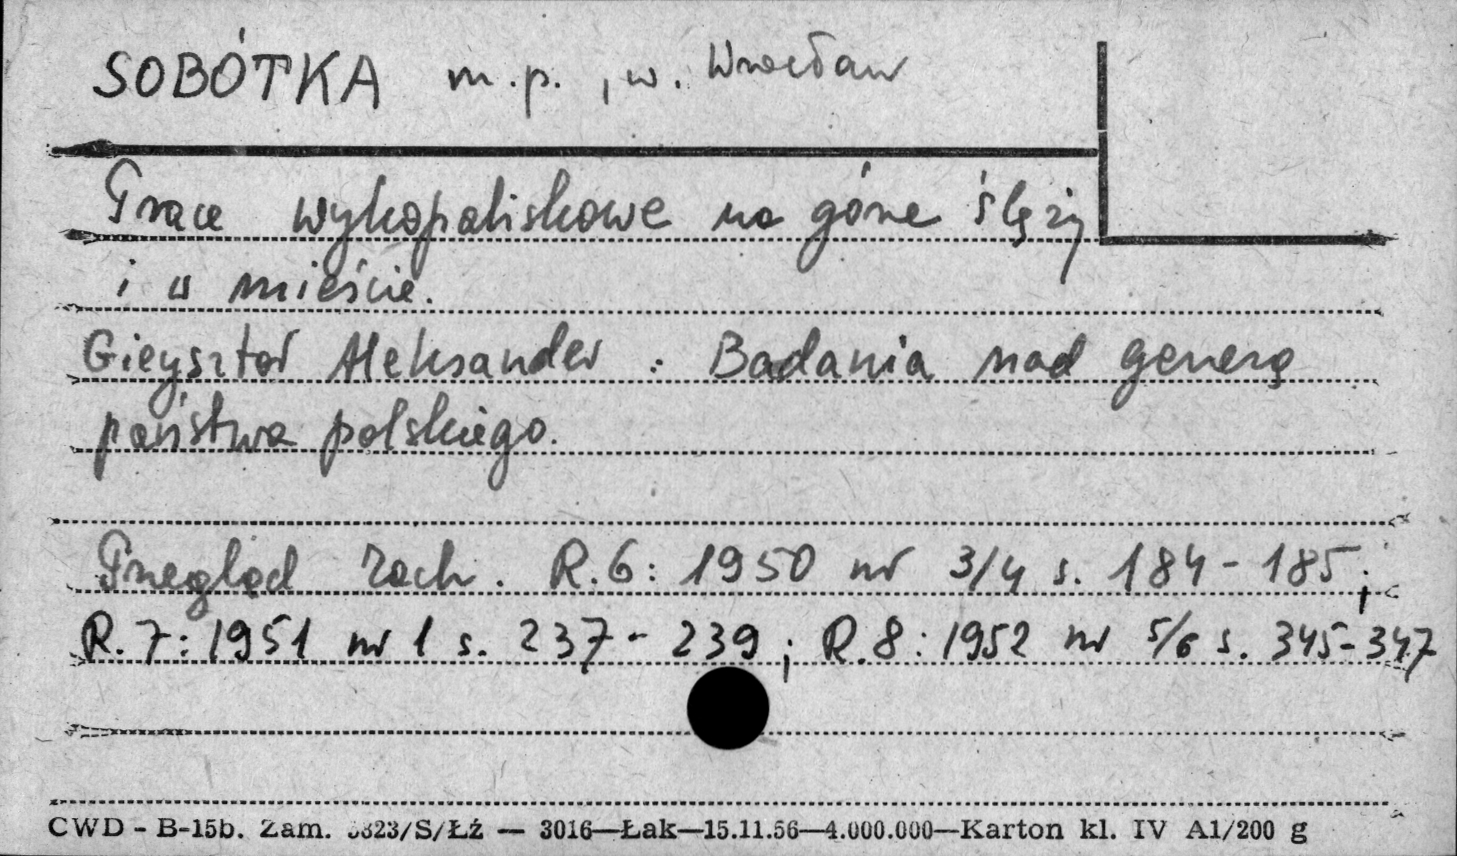 SOBÓTKA m.p., w. Wrocław
Prace wykopaliskowe na górze Ślęży
i w mieście.
Gieysztor Aleksander : Badania nad genezą
państwa polskiego.
Przegląd Zach. R.6: 1950 nr 3/4 s. 184-185;
R.7: 1951 nr 1 s. 237-239; R.8: 1952 nr 5/6 s. 345-347
CWD - B-15b. Zam. 3823/S/Łź — 3016—Łak—15.11.56—4.000.000—Karton kl. IV A1/200 g